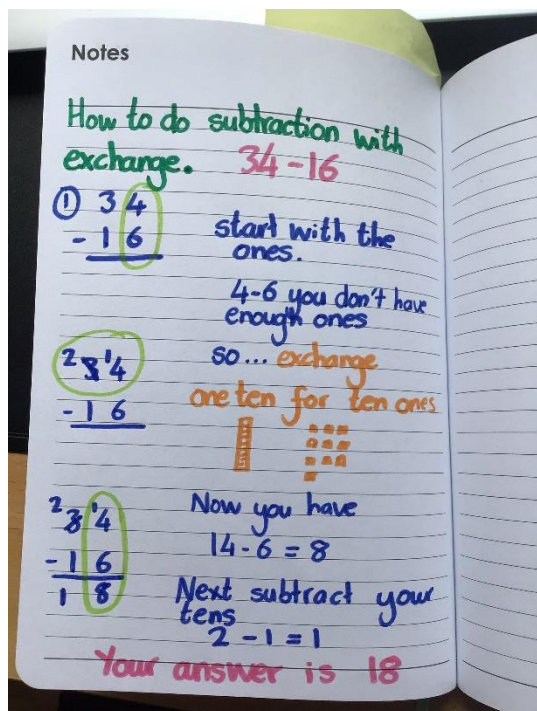 Notes
How to do subtraction with
exchange. 34-16
① 3 4
- 1 6
start with the
ones.
4-6 you don't have
enough ones
so... exchange
one ten for ten ones
2 3 14
- 1 6
Now you have
14-6 = 8
2 3 14
- 1 6
1 8
Next subtract your
tens
2-1=1
Your answer is 18